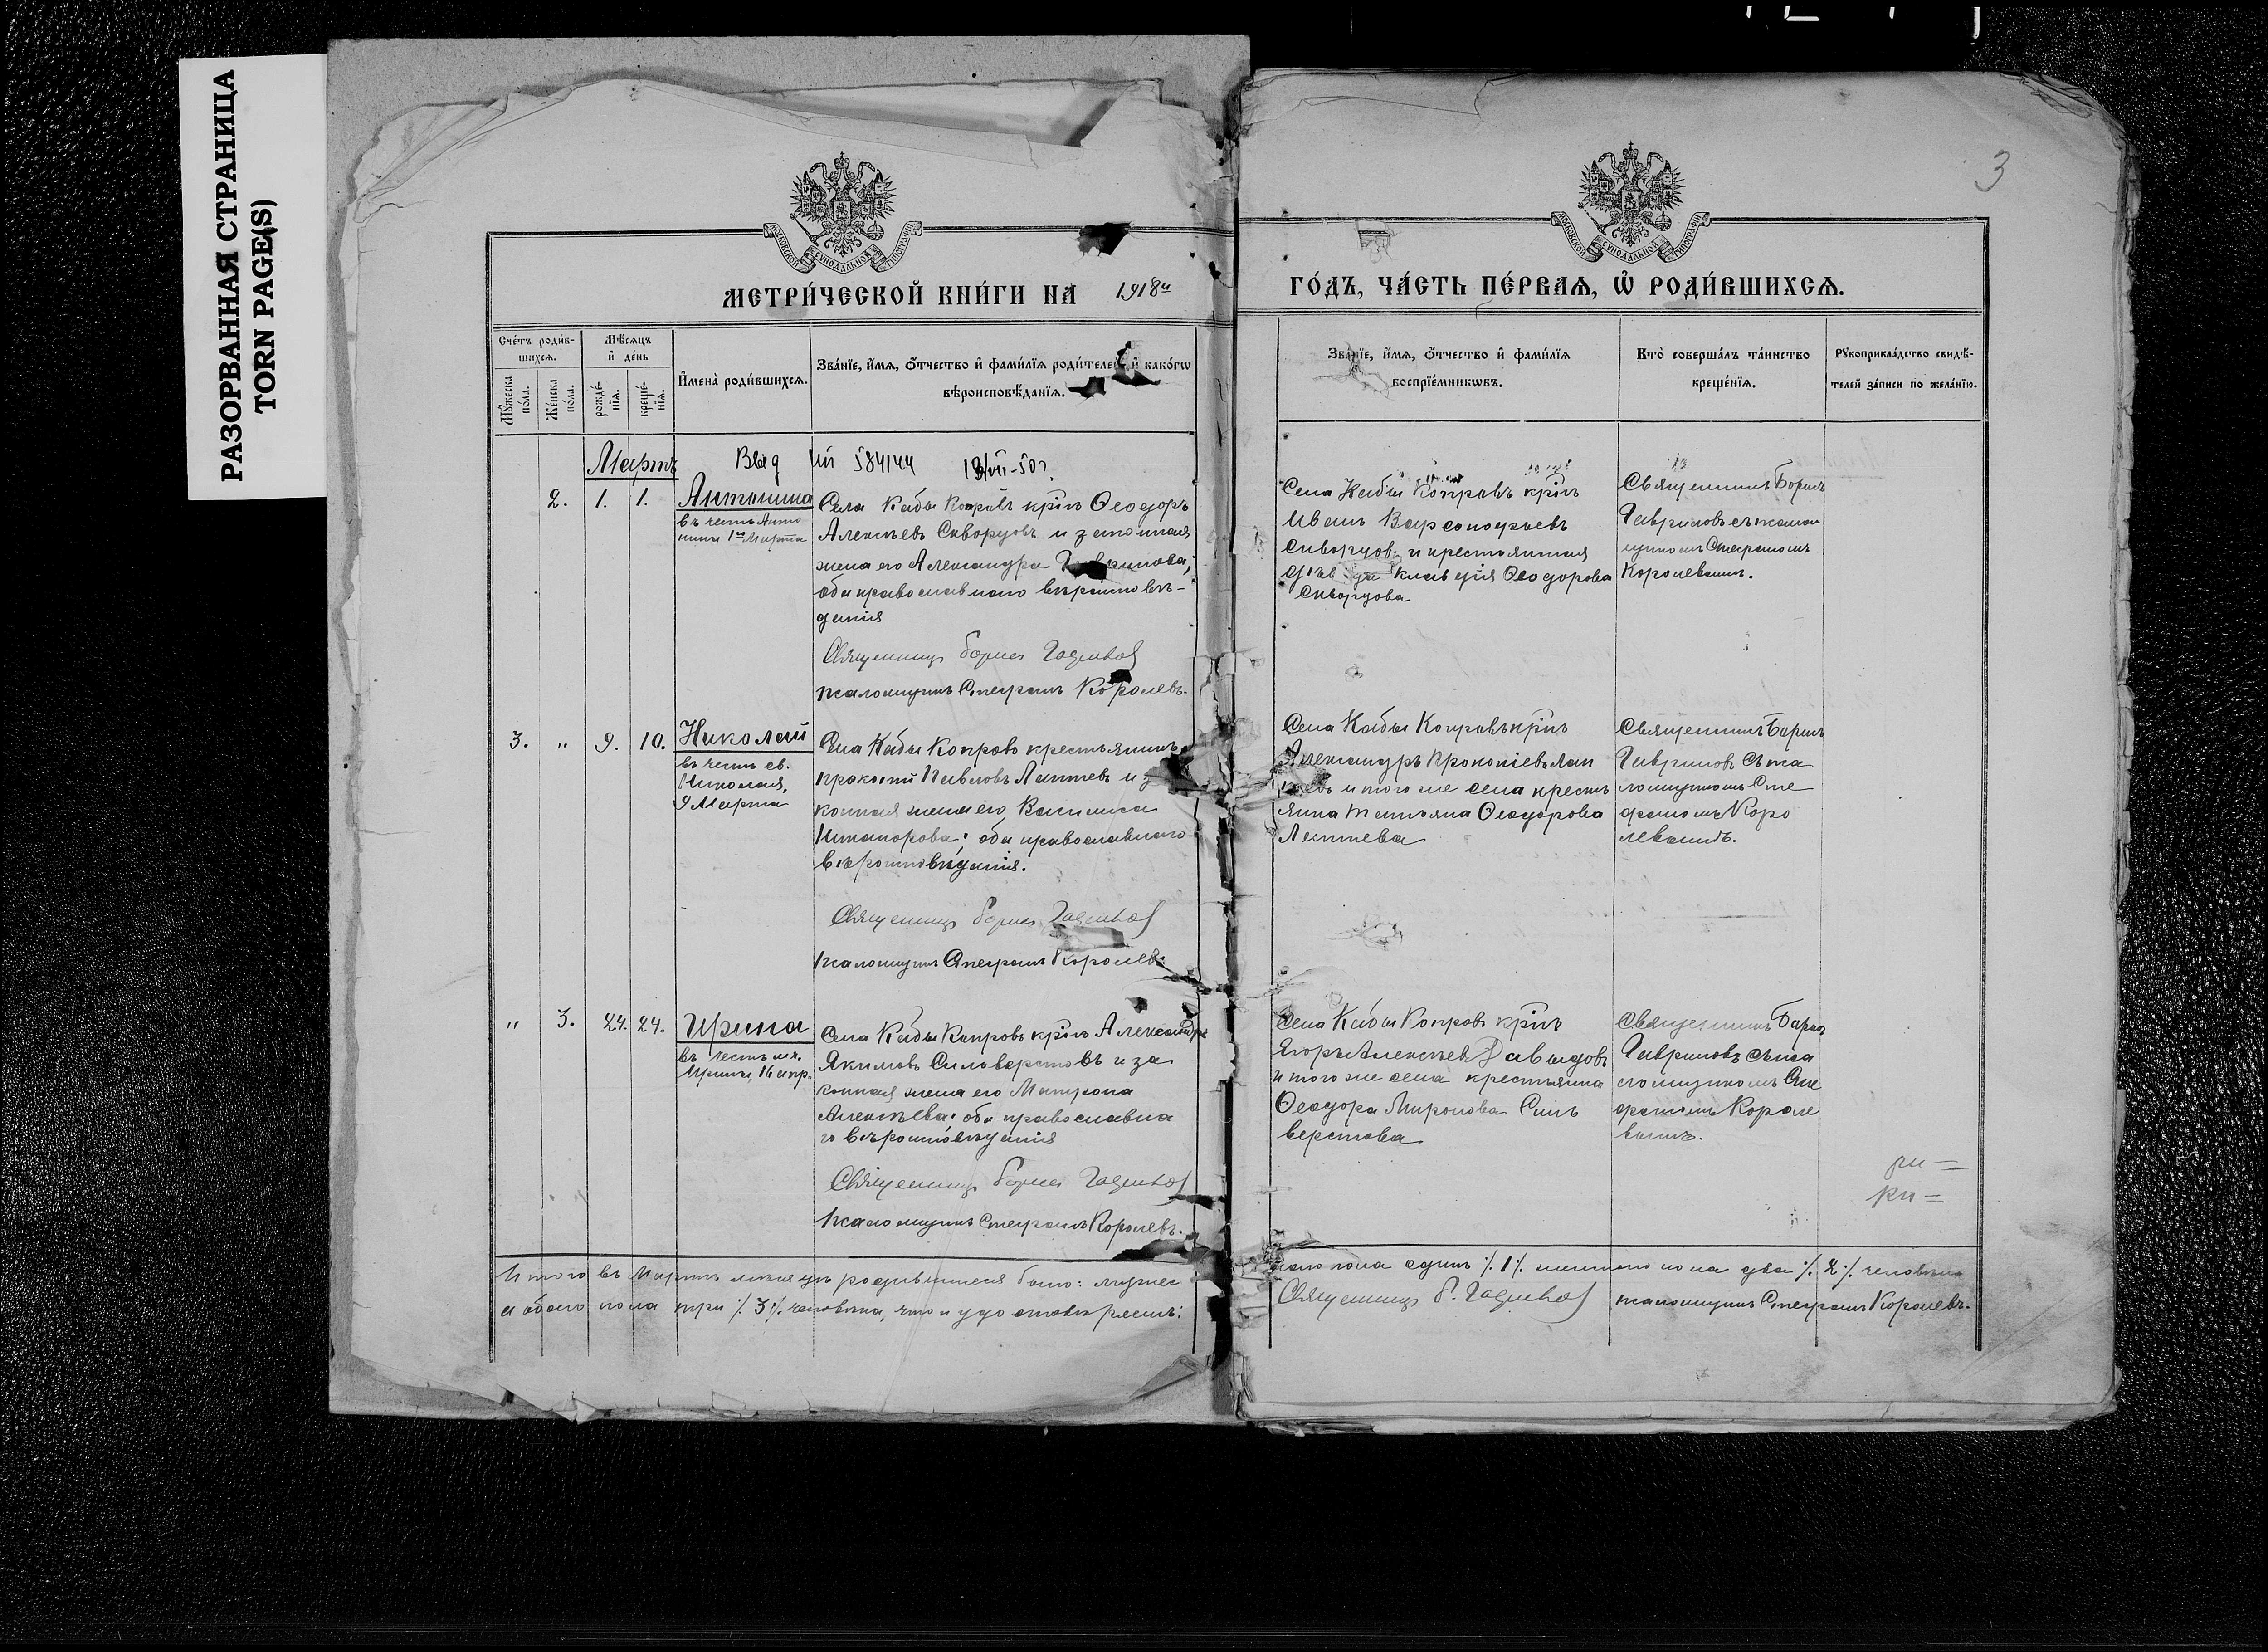 РАЗОРВАННАЯ СТРАНИЦА
TORN PAGE(S)
3
МОСКОВСКОЙ СѴНОДАЛЬНОЙ ТИПОГРАФІИ
МОСКОВСКОЙ СѴНОДАЛЬНОЙ ТИПОГРАФІИ
МЕТРИ́ЧЕСКОЙ КНИ́ГИ НА 1918й
ГО́ДЪ, ЧА́СТЬ ПЕ́РВАѦ, Ѽ РОДИ́ВШИХСѦ.
Сче́тъ роди́в-
шихсѧ.
Мѣ́сѧцъ
и҆ де́нь
Мꙋ́жеска по́ла.
Же́нска по́ла.
рожде́-
нїѧ.
креще́-
нїѧ.
И҆мена̀ роди́вшихсѧ.
Зва́нїе, и҆́мѧ, ѻ҆́тчество и҆ фами́лїѧ роди́телей и҆ како́гѡ
вѣроисповѣ́данїѧ.
Зва́нїе, и҆́мѧ, ѻ҆́тчество и҆ фами́лїѧ
воспрїе́мникѡвъ.
Кто̀ соверша́лъ та́инство
креще́нїѧ.
Рꙋкоприкла́дство свидѣ́-
телей за́писи по жела́нїю.
Мартъ
584144
2. 1. 1. Антонина
въ честь Анто
нины 1го Марта
Села Кабы Копровъ крнъ Ѳеодоръ
Алексѣевъ Скворцовъ и законная
жена его Александра
оба православнаго вѣроисповѣ-
данія
Священникъ Борисъ
Псаломщикъ Стефанъ Королевъ.
Села Кабы Копровъ крнъ
Иванъ Варсонофьевъ
Скворцовъ и крестьянская
дѣвица Клавдія Ѳеодорова
Скворцова
Священникъ Борисъ
Гавриловъ съ псалом
щикомъ Стефаномъ
Королевымъ.
3. " 9. 10. Николай
въ честь св.
Николая,
9 Марта
Села Кабы Копровъ крестьянинъ
Прокопій Павловъ Лаптевъ и за
конная жена его Василиса
Никанорова; оба православнаго
вѣроисповѣданія.
Священникъ Борисъ
Псаломщикъ Стефанъ Королевъ
Села Кабы Копровъ крнъ
Александръ Прокопіевъ Лап
тевъ и того же села кресть
янка Татьяна Ѳеодорова
Лаптева
Священникъ Борисъ
Гавриловъ съ пса
ломщикомъ Сте
фаномъ Коро
левымъ.
" 3. 24. 24. Ирина
въ честь мч.
Ирины, 16 апр.
Села Кабы Копровъ крнъ Александръ
Якимовъ Силоверстовъ и за
конная жена его Матрона
Алексѣева; оба православна
го вѣроисповѣданія
Священникъ Борисъ
Псаломщикъ Стефанъ Королевъ.
Села Кабы Копровъ крнъ
Егоръ Алексѣевъ Давыдовъ
и того же села крестьянка
Ѳеодора Миронова Сило
верстова
Священникъ Борисъ
Гавриловъ съ пса
ломщикомъ Сте
фаномъ Короле
вымъ.
Итого въ Мартѣ мѣсяцѣ родившихся было: мужес
каго пола одинъ ٪ 1 ٪ женскаго пола два ٪ 2 ٪ человѣка
а обоего пола три ٪ 3 ٪ человѣка, что и удостовѣряемъ:
Священникъ Б.
Псаломщикъ Стефанъ Королевъ.